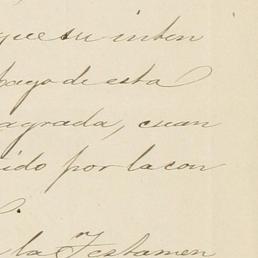 que su inten
pago de esta
agrada, cuan
ido por la con
la Testamen